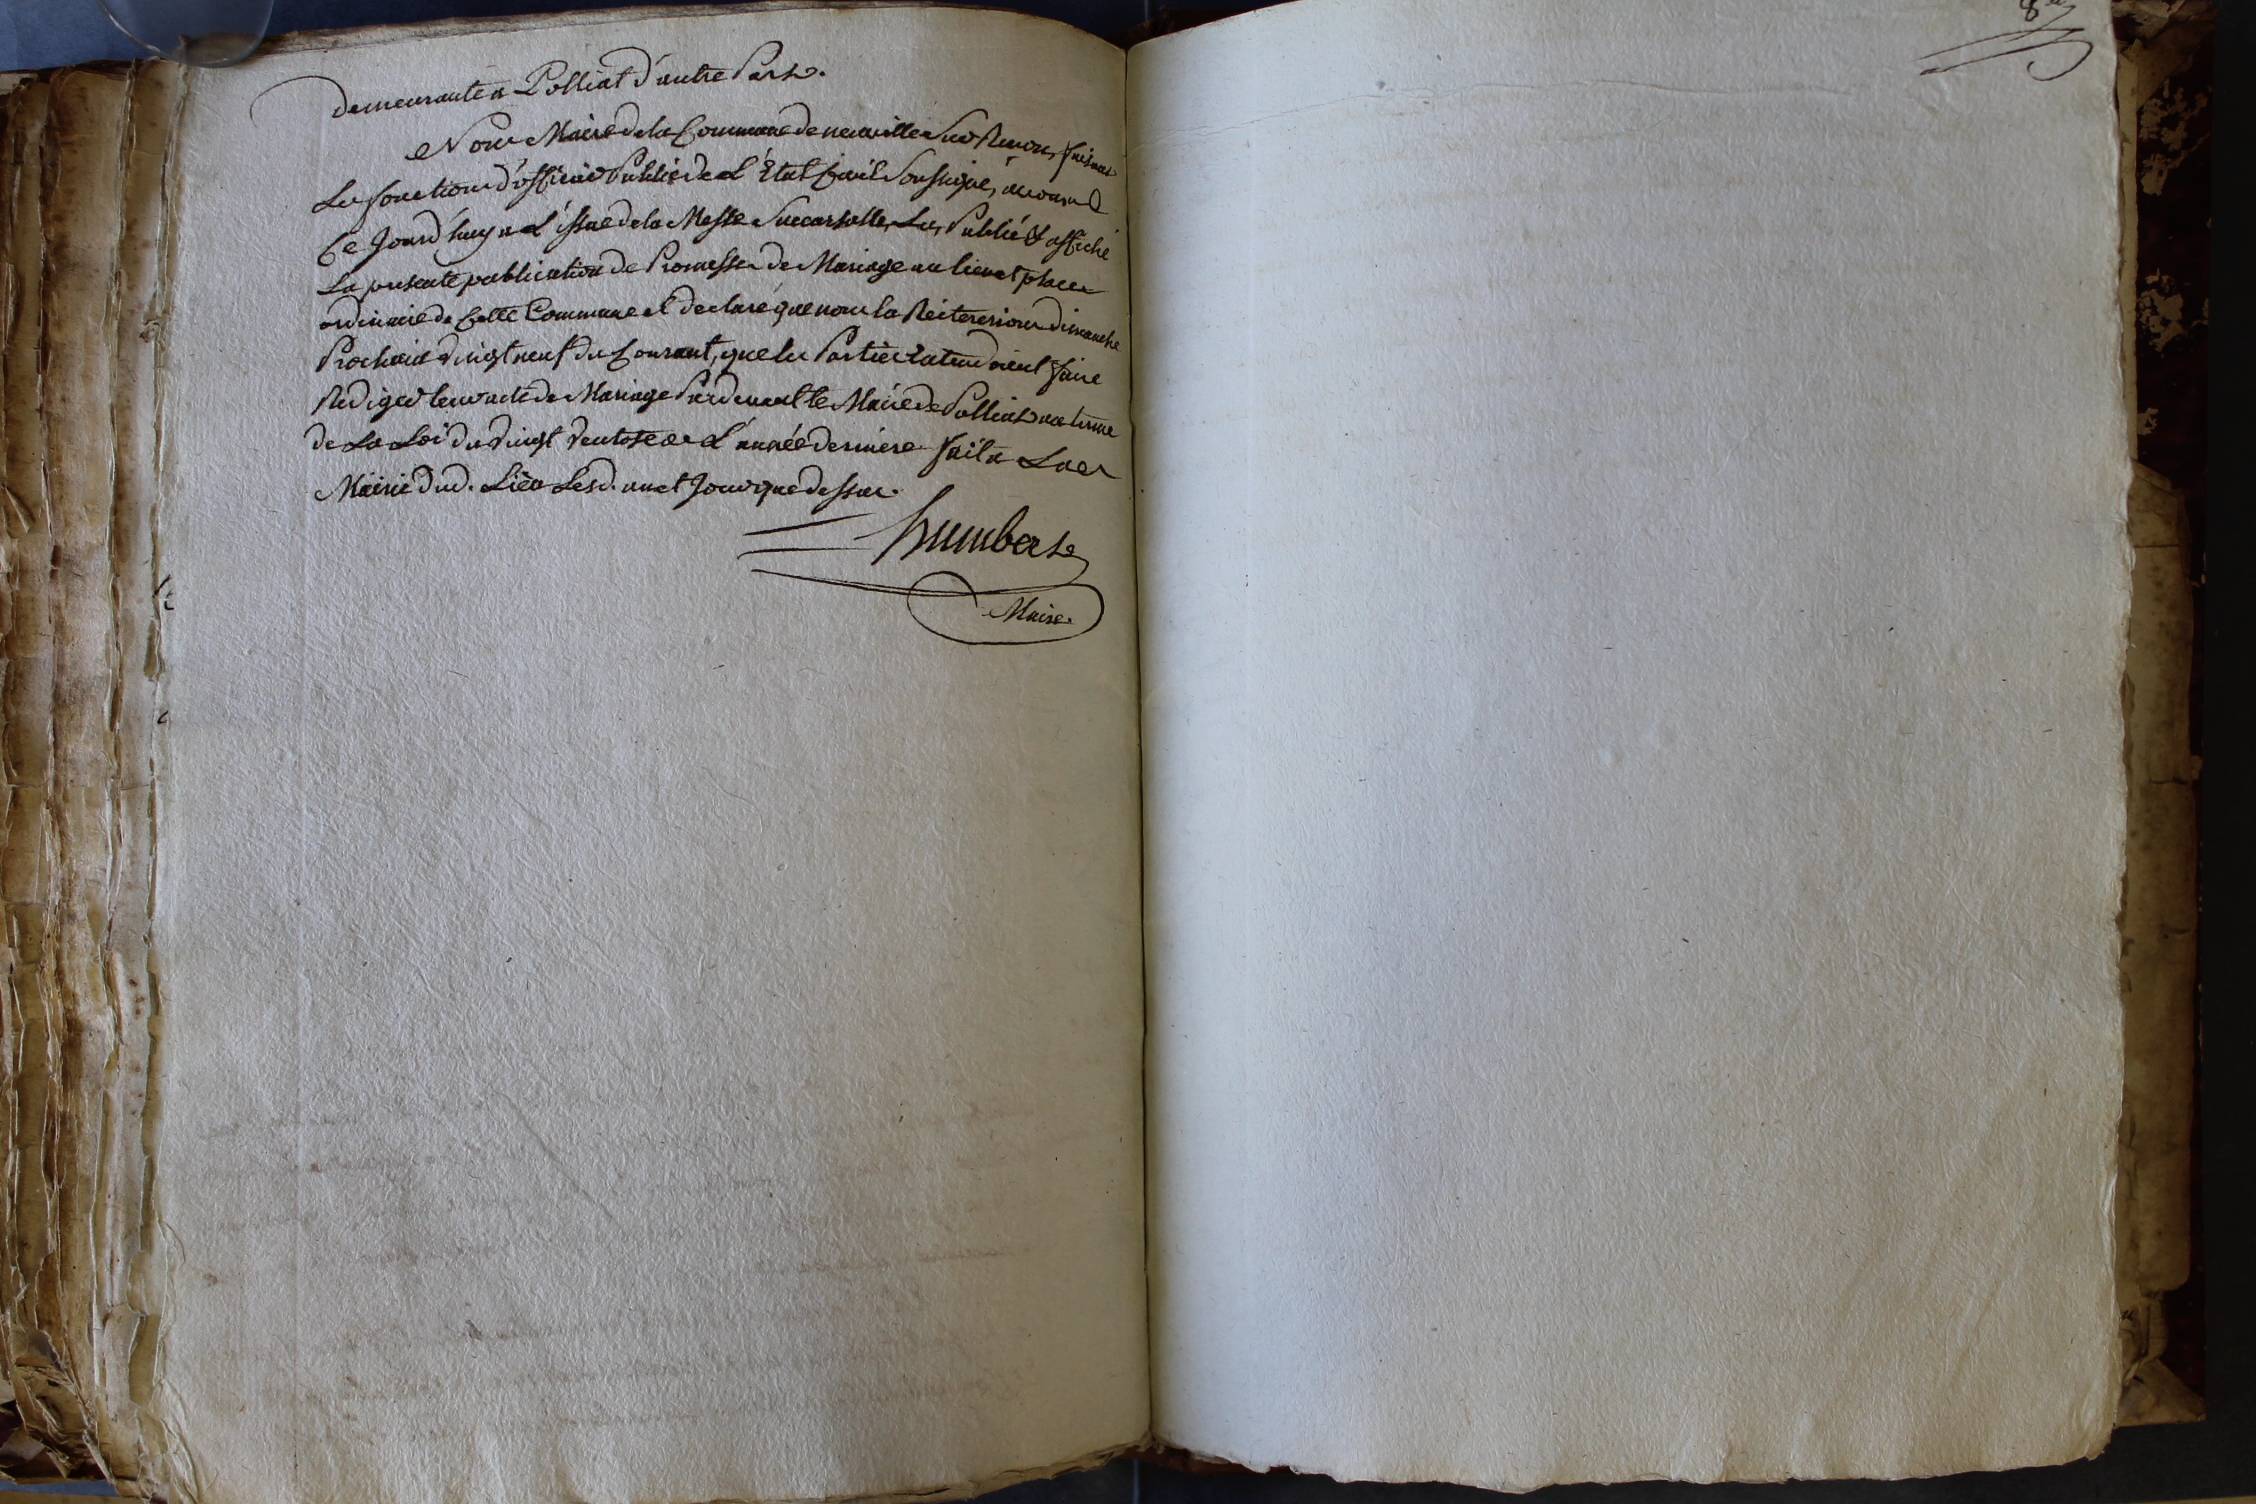 demeurante a Polliat d'autre Part.
Nous Maire de la Commune de neuville Sur Renon, faisant
Les fonctions d'officier Public de L'Etat Civil Soussigné, avons
Ce Jourd'huy a L'issue de la Messe Succursalle, Lu, Publié & affiché
La presente publication de Promesse de Mariage au lieu et place
ordinaire de Cette Commune et declaré que nous la Reitererions dimanche
Prochain vingt neuf du Courant, que les Parties Entendoient faire
Rediger leur acte de Mariage Pardevant le Maire de Polliat au terme
de La Loi du vingt ventose de L'année derniere fait a La
Mairie dud. Lieu Lesd. an et Jour que dessus.
humbert
Maire.